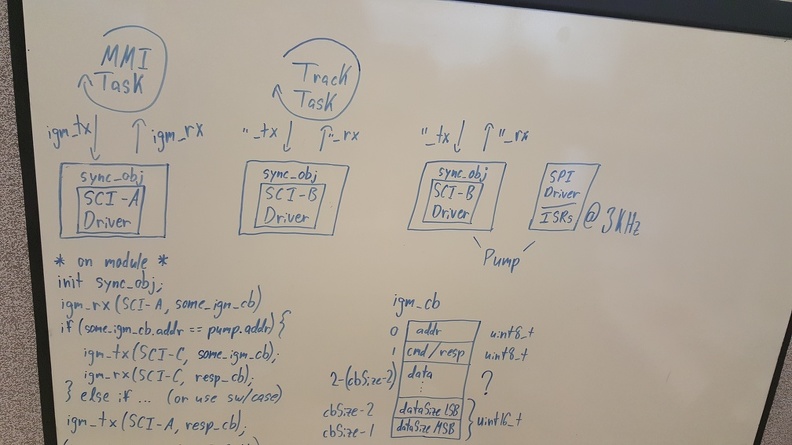 MMI
Task
Track
Task
igm_tx
igm_rx
"_tx
"_rx
"_tx
"_rx
sync_obj
SCI-A
Driver
sync_obj
SCI-B
Driver
sync_obj
SCI-B
Driver
SPI
Driver
ISRs
@ 3KHz
Pump
* on module *
init sync_obj;
igm_rx(SCI-A, some_igm_cb)
if(some_igm_cb.addr == pump.addr){
igm_tx(SCI-C, some_igm_cb);
igm_rx(SCI-C, resp_cb);
} else if ... (or use sw/case)
igm_tx(SCI-A, resp_cb);
igm_cb
0 addr uint8_t
1 cmd/resp uint8_t
2-(cbSize-2) data ?
cbSize-2 dataSize LSB
uint16_t
cbSize-1 dataSize MSB